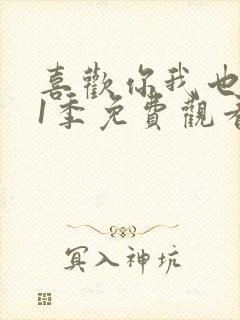 喜歡你我也
1季免費觀看
冥入神坑